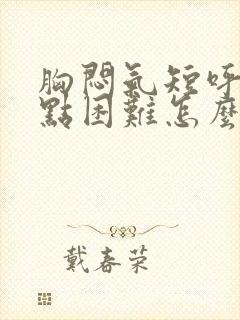 胸悶氣短呼
點困難怎麼
戴春荣